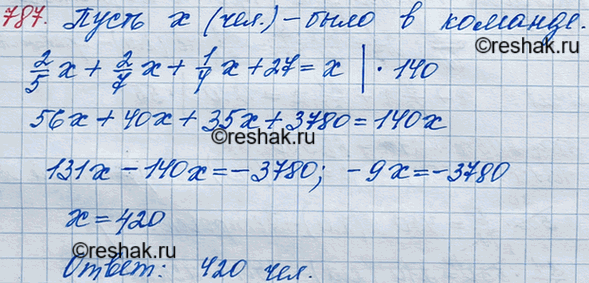 787. Пусть x (чел.) - было в команде.
2/5 x + 2/7 x + 1/4 x + 27 = x | · 140
56x + 40x + 35x + 3780 = 140x
©reshak.ru
©reshak.ru
131x - 140x = -3780; -9x = -3780
x = 420
©reshak.ru
Ответ: 420 чел.